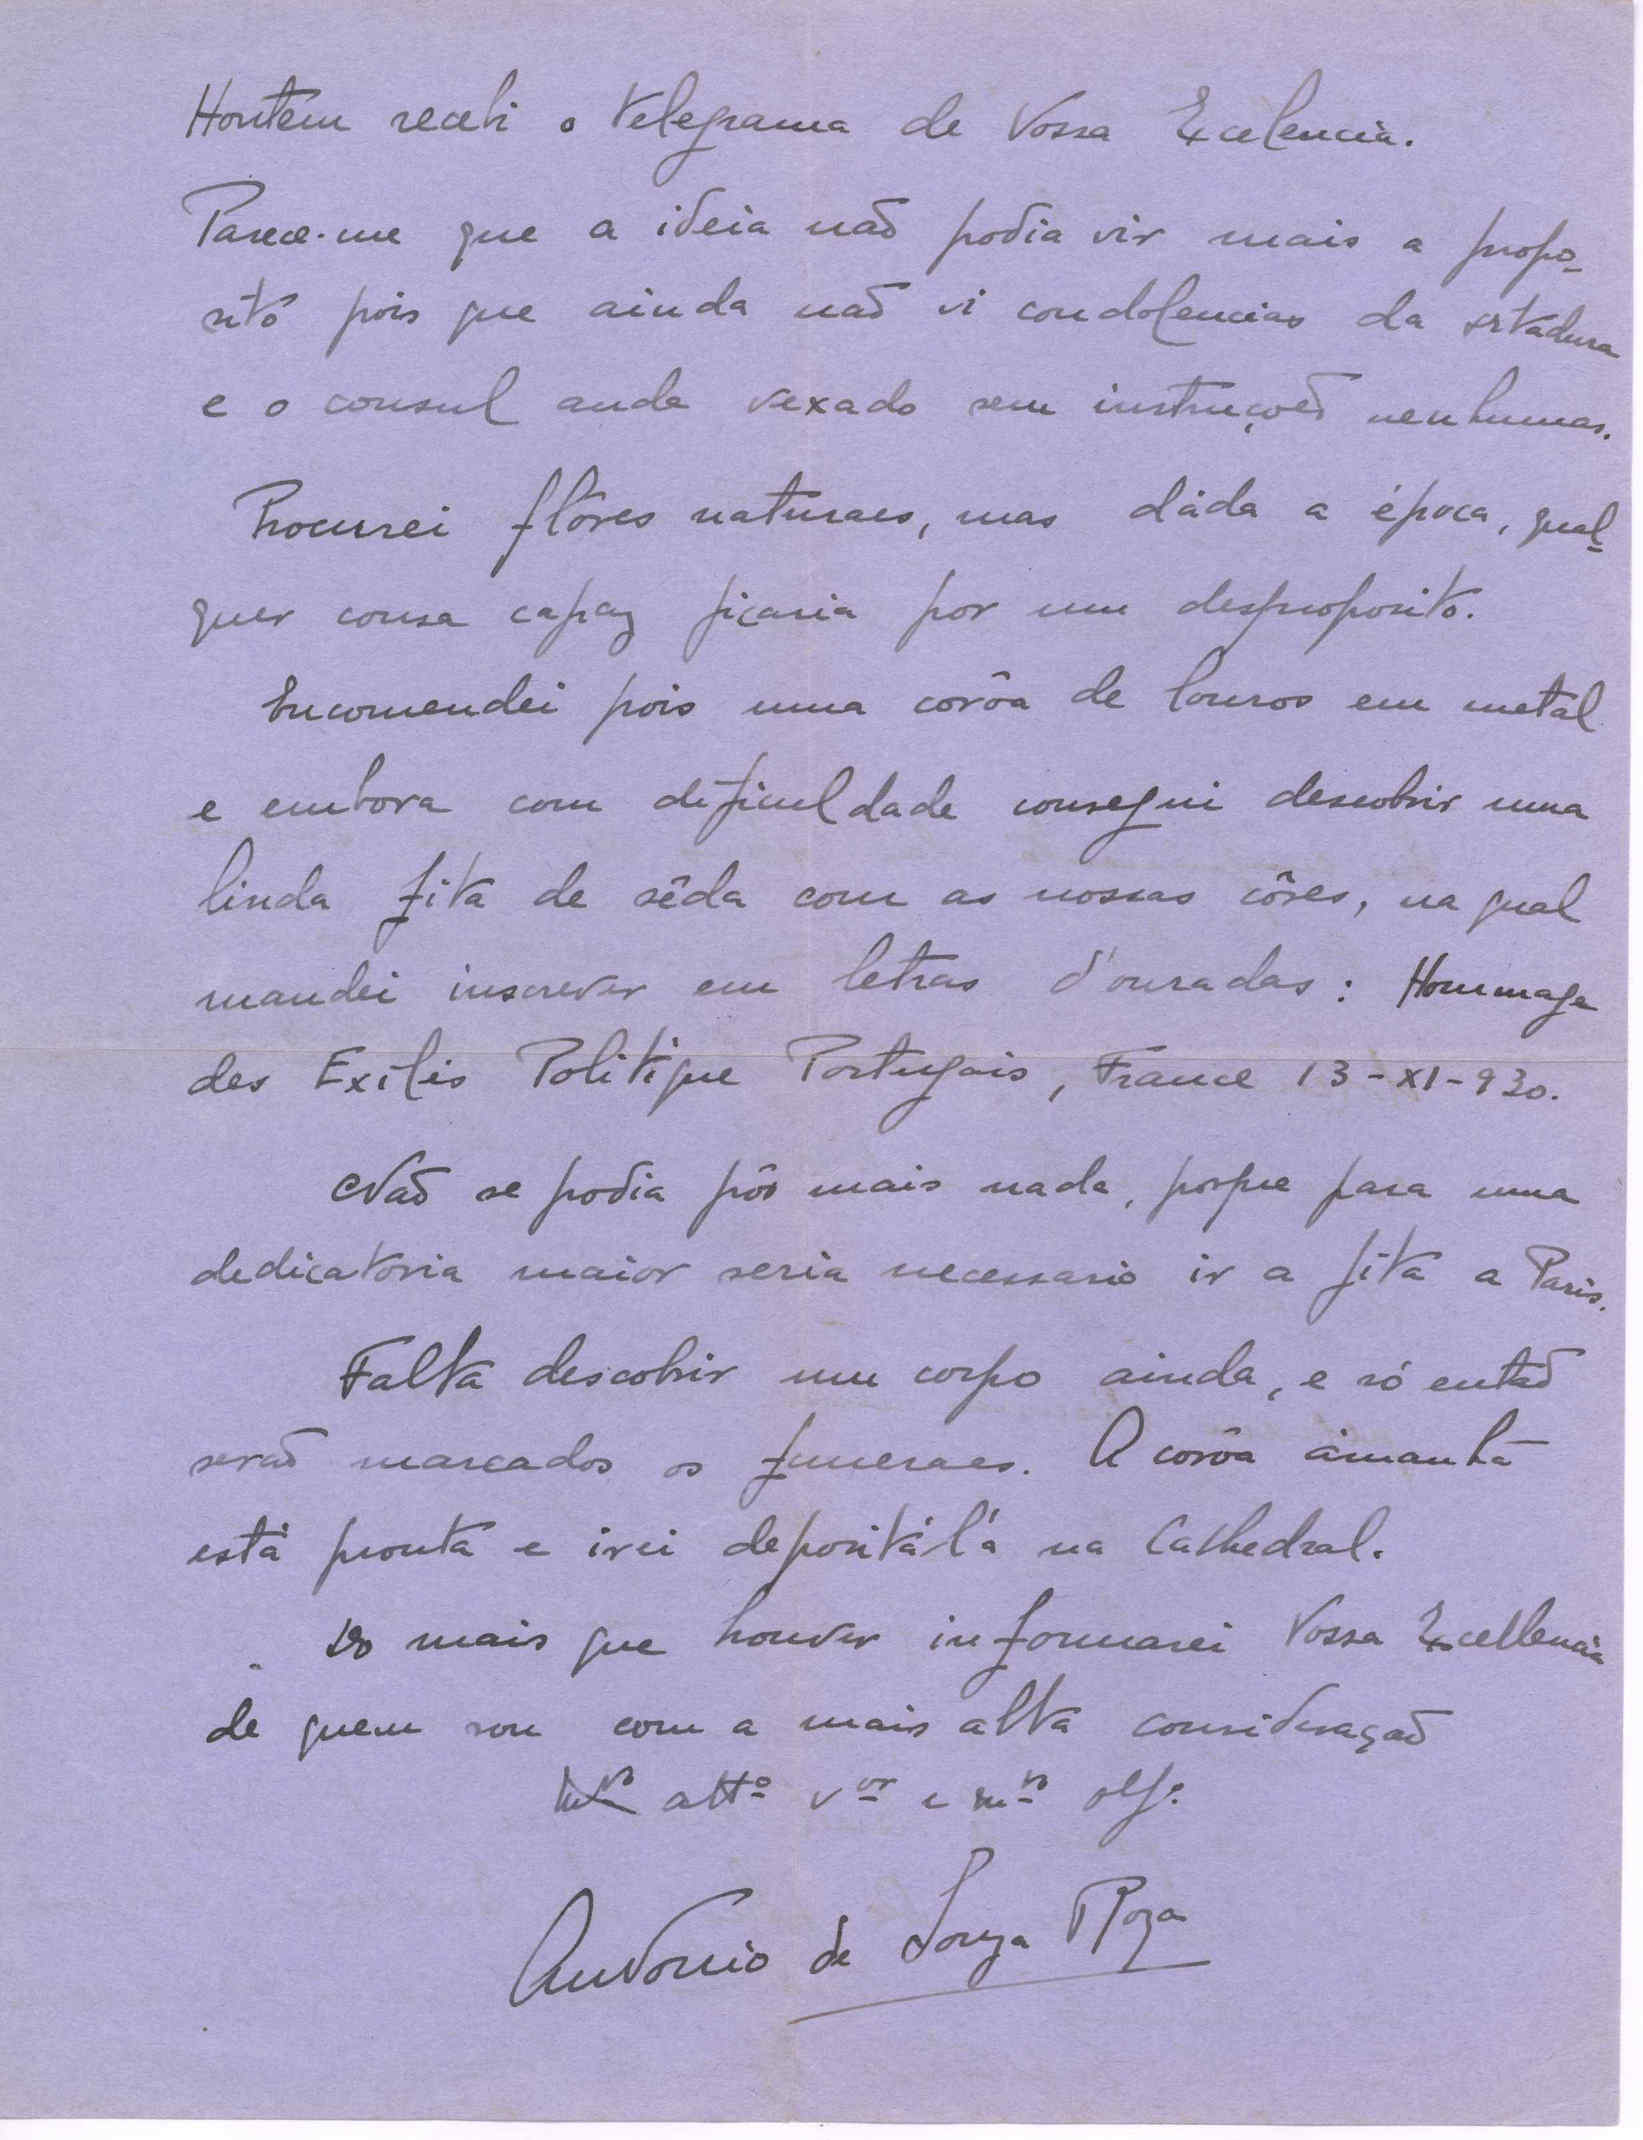 Hontem recebi o telegrama de Vossa Excelencia.
Parece-me que a ideia não podia vir mais a propo-
sito pois que ainda não vi condolencias da
e o consul anda vexado sem instruções nenhumas.
Procurei flôres naturaes, mas dáda a época, qual-
quer cousa capaz ficaria por um desproposito.
Encomendei pois uma corôa de louros em metal
e embora com dificuldade consegui descobrir uma
linda fita de sêda com as nossas côres, na qual
mandei inscrever em letras d'ouradas: Hommage
des Exilés Politique Portugais, France 13-XI-930.
Não se podia pôr mais nada, porque para uma
dedicatoria maior seria necessario ir a fita a Paris.
Falta descobrir um corpo ainda, e só então
serão marcados os funeraes. A corôa ámanhã
está pronta e irei depositá-l'a na Cathedral.
Do mais que houver informarei Vossa Excellencia
de quem sou com a mais alta consideração
attº vor e mto
Antonio de Souza Roza